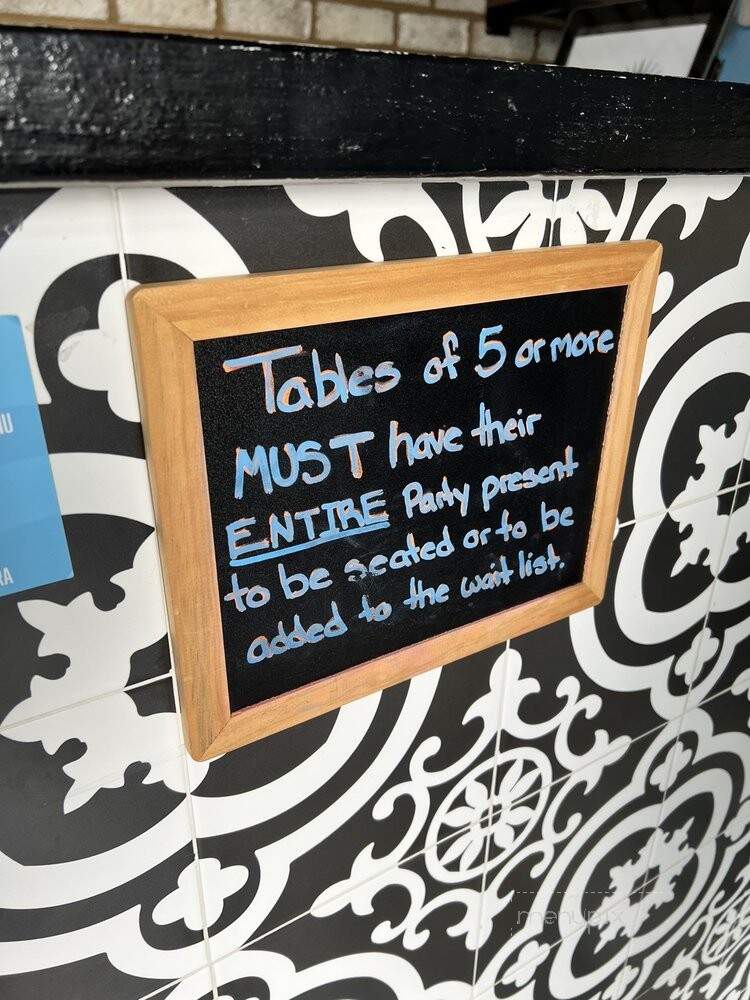 Tables of 5 or more
MUST have their
ENTIRE Party present
to be seated or to be
added to the wait list.
NU
RA
menupix